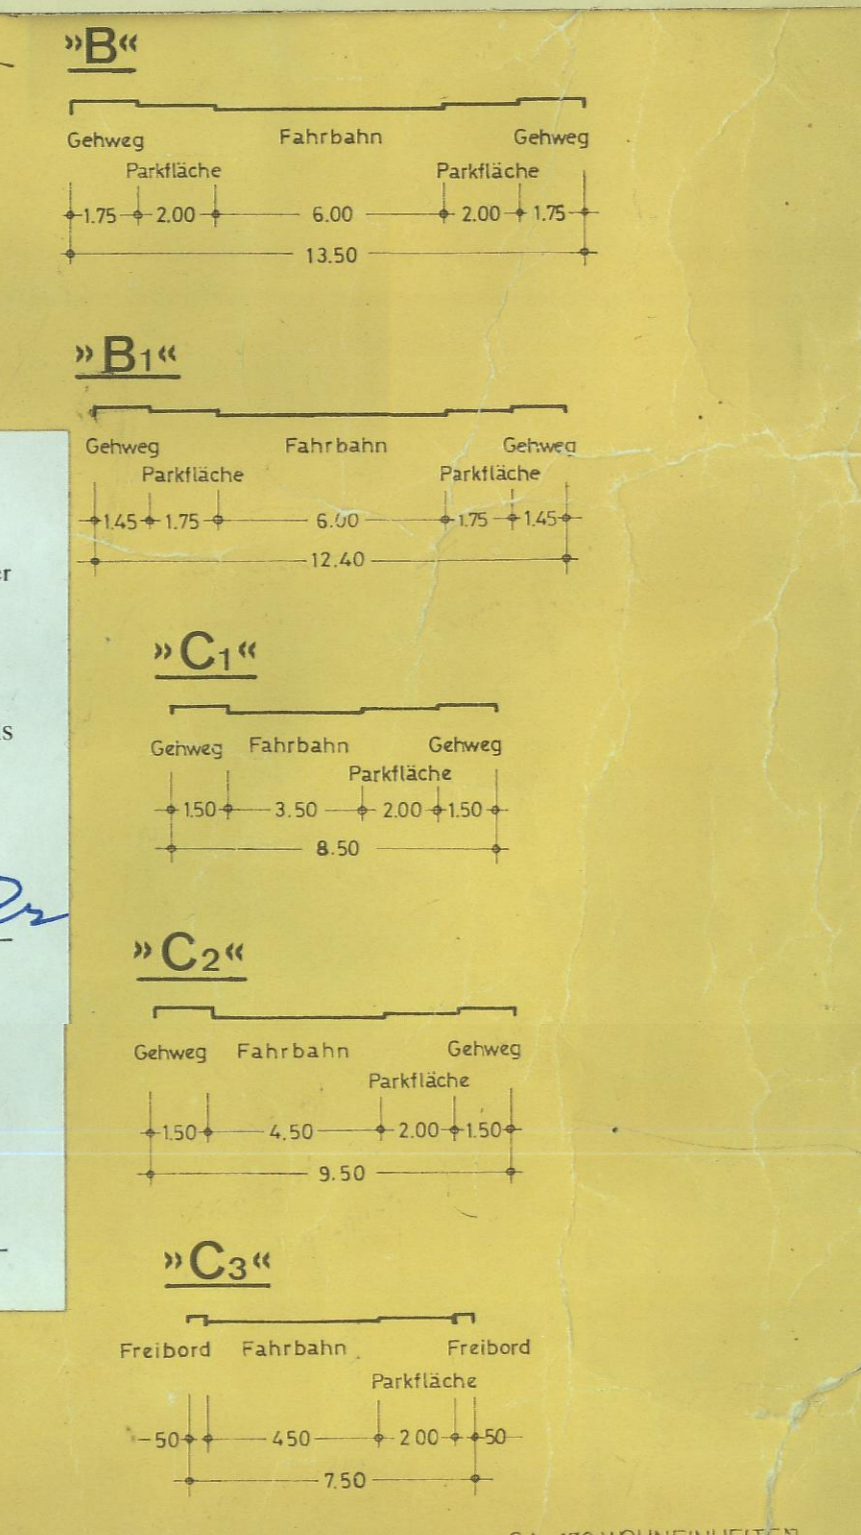 »B«
Gehweg Fahrbahn Gehweg
Parkfläche Parkfläche
1.75 2.00 6.00 2.00 1.75
13.50
»B1«
Gehweg Fahrbahn Gehweg
Parkfläche Parkfläche
1.45 1.75 6.00 1.75 1.45
12.40
er
»C1«
s
Gehweg Fahrbahn Gehweg
Parkfläche
1.50 3.50 2.00 1.50
8.50
»C2«
Gehweg Fahrbahn Gehweg
Parkfläche
1.50 4.50 2.00 1.50
9.50
»C3«
Freibord Fahrbahn Freibord
Parkfläche
50 450 2 00 50
7.50